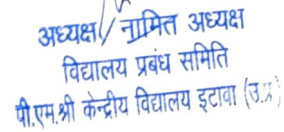 अध्यक्ष/ नामित अध्यक्ष
विद्यालय प्रबंध समिति
पी.एम.श्री केन्द्रीय विद्यालय इटावा (उ.प्र)